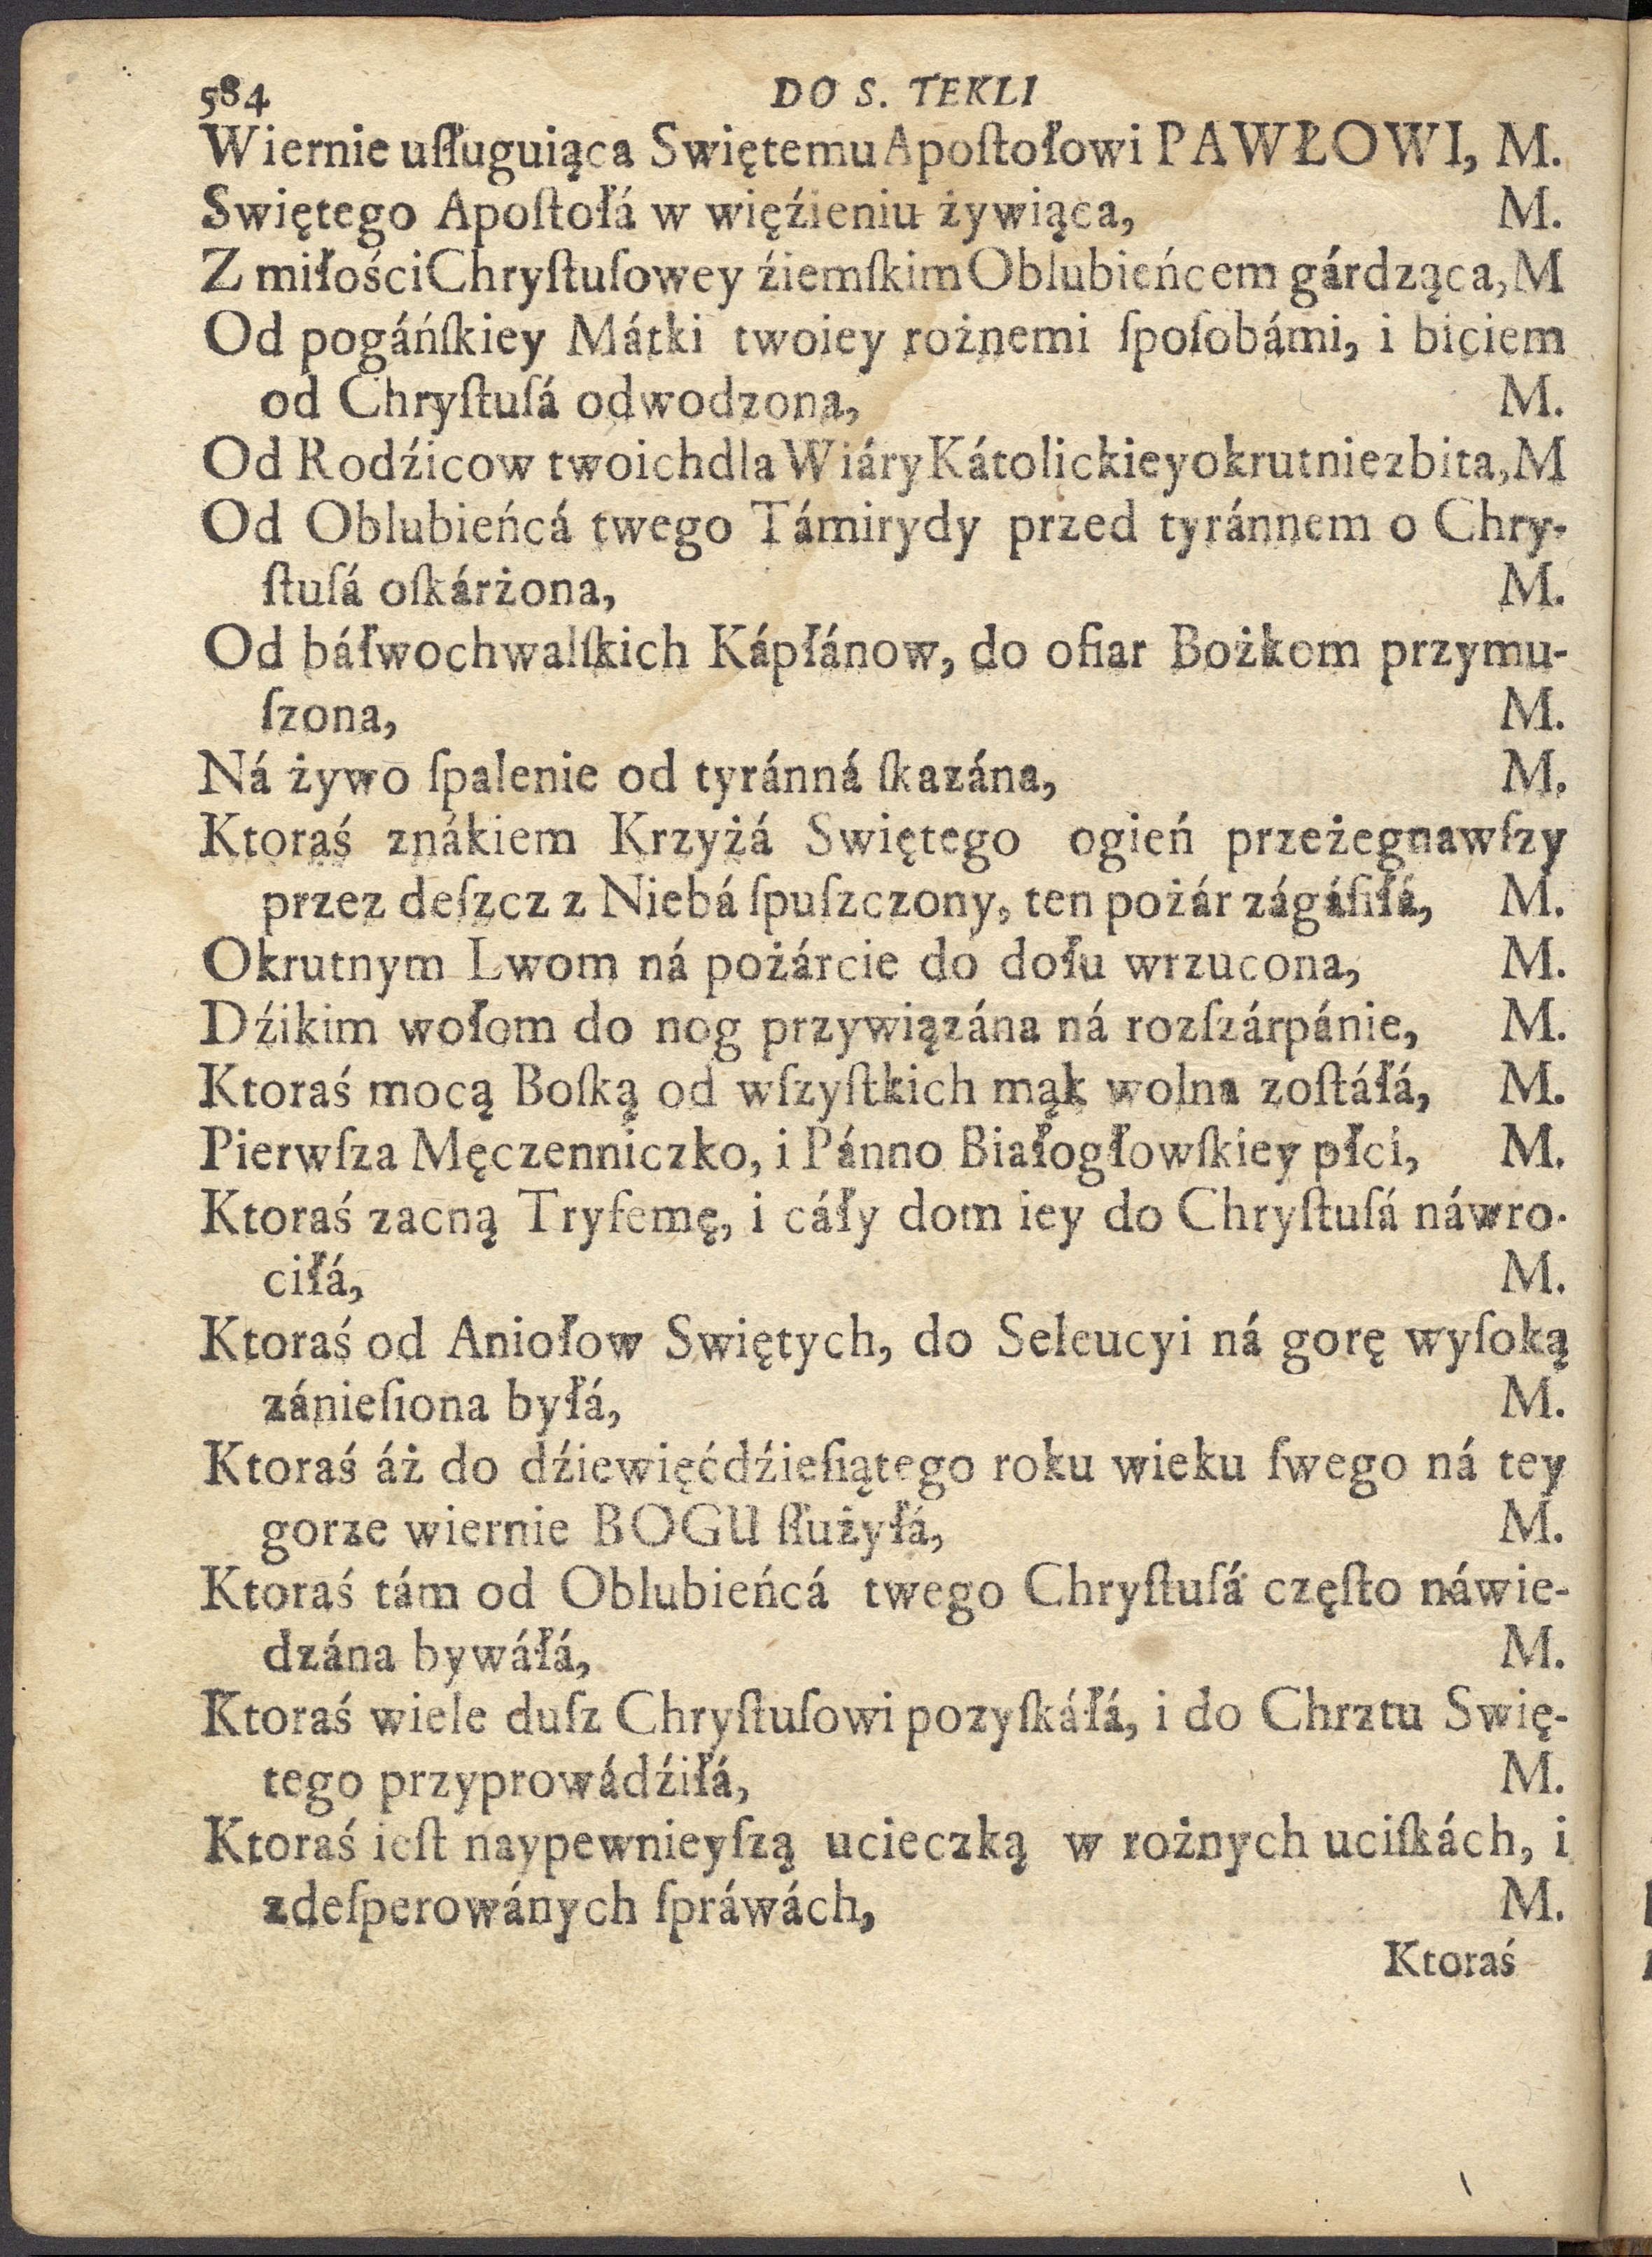 584 DO S. TEKLI
Wiernie uſługuiąca Swiętemu Apoſtołowi PAWŁOWI, M.
Swiętego Apoſtołá w więźieniu żywiąca, M.
Z miłości Chryſtuſowey źiemſkim Oblubieńcem gárdząca, M
Od pogáńſkiey Mátki twoiey rożnemi ſpoſobámi, i biciem
od Chryſtuſá odwodzona, M.
Od Rodźicow twoich dla Wiáry Kátolickiey okrutnie zbita, M
Od Oblubieńcá twego Támirydy przed tyránnem o Chry-
ſtuſá oſkárżona, M.
Od báłwochwalſkich Kápłánow, do ofiar Bożkom przymu-
ſzona, M.
Ná żywo ſpalenie od tyránná ſkazána, M.
Ktoraś znákiem Krzyżá Swiętego ogień przeżegnawſzy
przez deſzcz z Niebá ſpuſzczony, ten pożár zágáſiłá, M.
Okrutnym Lwom ná pożárcie do dołu wrzucona, M.
Dźikim wołom do nog przywiązána ná rozſzárpánie, M.
Ktoraś mocą Boſką od wſzyſtkich mąk wolna zoſtáłá, M.
Pierwſza Męczenniczko, i Pánno Białogłowſkiey płci, M.
Ktoraś zacną Tryfemę, i cáły dom iey do Chryſtuſá náwro-
ciłá, M.
Ktoraś od Aniołow Swiętych, do Seleucyi ná gorę wyſoką
zánieſiona byłá, M.
Ktoraś áż do dźiewięćdźieſiątego roku wieku ſwego ná tey
gorze wiernie BOGU ſłużyłá, M.
Ktoraś tám od Oblubieńcá twego Chryſtuſá częſto náwie-
dzána bywáłá, M.
Ktoraś wiele duſz Chryſtuſowi pozyſkáłá, i do Chrztu Swię-
tego przyprowádźiłá, M.
Ktoraś ieſt naypewnieyſzą ucieczką w rożnych uciſkách, i
zdeſperowánych ſpráwách, M.
Ktoraś